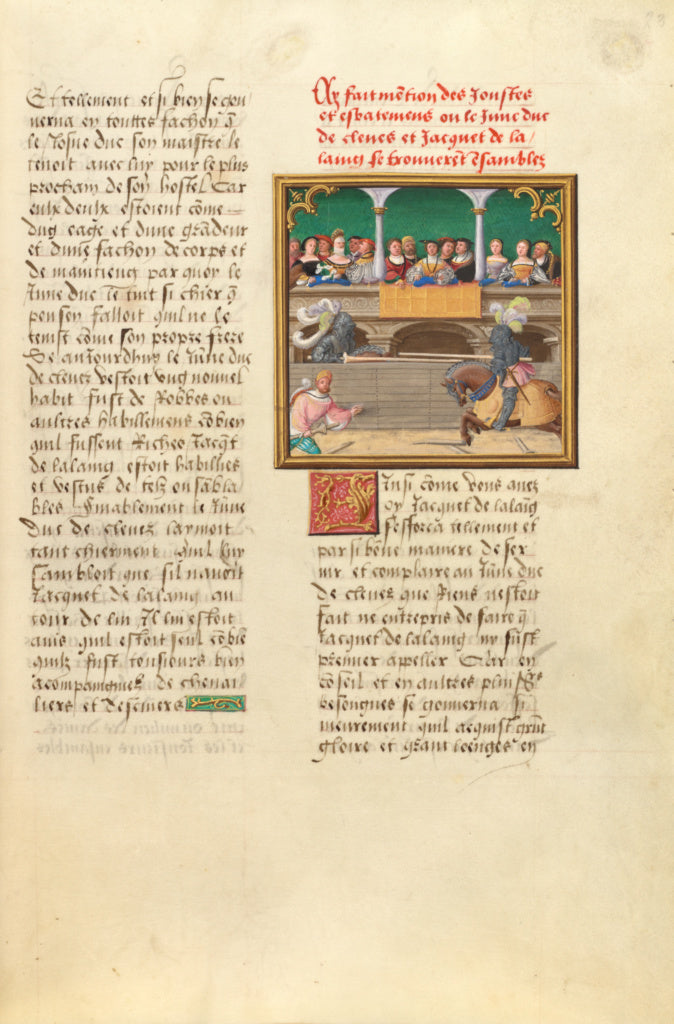 Et tellement et si bien se gou
verna en touttes fachon q̄
le Josne duc son maistre le
tenoit avec luy pour le plus
prochain de son hostel Car
eulx deulx estoient cōme
dug eage et dune grādeur
et dune fachon de corps et
de maintieng par quoy le
June duc le tint si chier q̄
penser falloit quil ne le
tenist cōme son propre frere
Se aujourdhuy le June duc
de cleves vestoit ung nouvel
habit fust de Robbes ou
aultres habillemens cōbien
quil fussent Riches Jacqt
de lalaing estoit habillies
et vestus de telz ou sābla
bles finablement le June
duc de cleves laymoit
tant chierment quil luy
sambloit que sil navoit
Jacquet de lalaing au
tour de lui Il lui estoit
avis quil estoit seul cōbiē
quilz fust tousiours bien
acompaingnies de cheval
liers et descuiers
Ay fait mētion des Joustes
et esbatemens ou le June duc
de cleves et Jacquet de la
laing se trouverēt ēsambles
Ainsi cōme vous avez
oy Jacquet de lalaīg
sefforca tellement et
par si bōne maniere de ser
vir et complaire au June duc
de cleves que Riens nestoit
fait ne entrepris de faire q̄
Jacquet de lalaing ny fust
premier appeller Car en
cōseil et en aultres plusrs
besongnes se gouverna si
meurement quil acquist grāt
gloire et grant loenges en